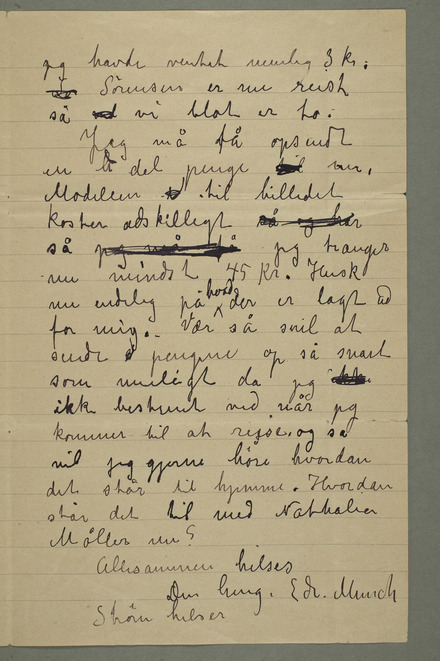 jeg havde ventet nemlig 3 kr.
Sörensen er nu reist
så vi blot er to.
Jeg må få opsendt
en del penge nu.
Modellen til billedet
koster adskilligt
så jeg trænger
nu mindst 45 Kr. Husk
nu endelig på hvad der er lagt ud
for mig. – Vær så snil at
sende pengene op så snart
som muligt da jeg
ikke bestemt ved når jeg
kommer til at reise, og så
vil jeg gjerne höre hvordan
det står til hjemme. Hvordan
står det til med Nathhalie
Möller nu?
Allesammen hilses
Din heng. Edv. Munch
Ström hilser